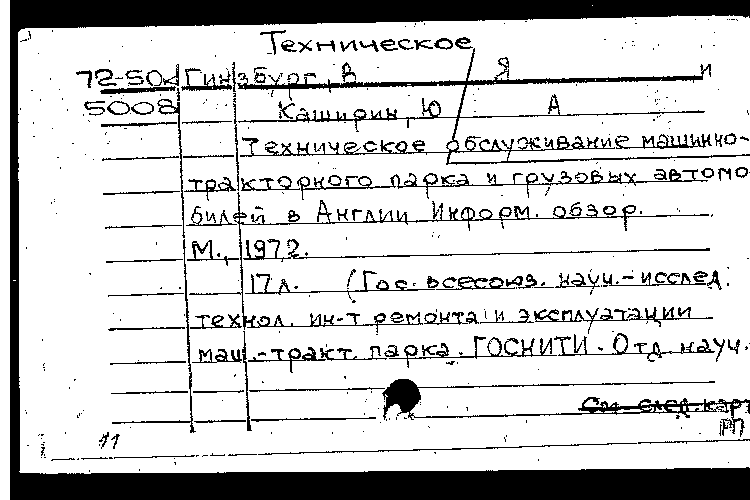 Техническое
72-50к Гинзбург, В Я и
5008 Каширин, Ю А
Техническое обслуживание машинно-
тракторного парка и грузовых автомо-
билей в Англии Информ. обзор.
М., 1972.
17 л. (Гос. всесоюз. науч.-исслед.
технол. ин-т ремонта и эксплуатации
маш.-тракт. парка. ГОСНИТИ. Отд науч.-
См. след. карт
РП
11